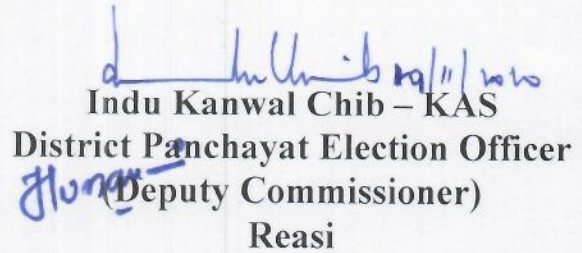 29/11/2020
Indu Kanwal Chib – KAS
District Panchayat Election Officer
(Deputy Commissioner)
Reasi